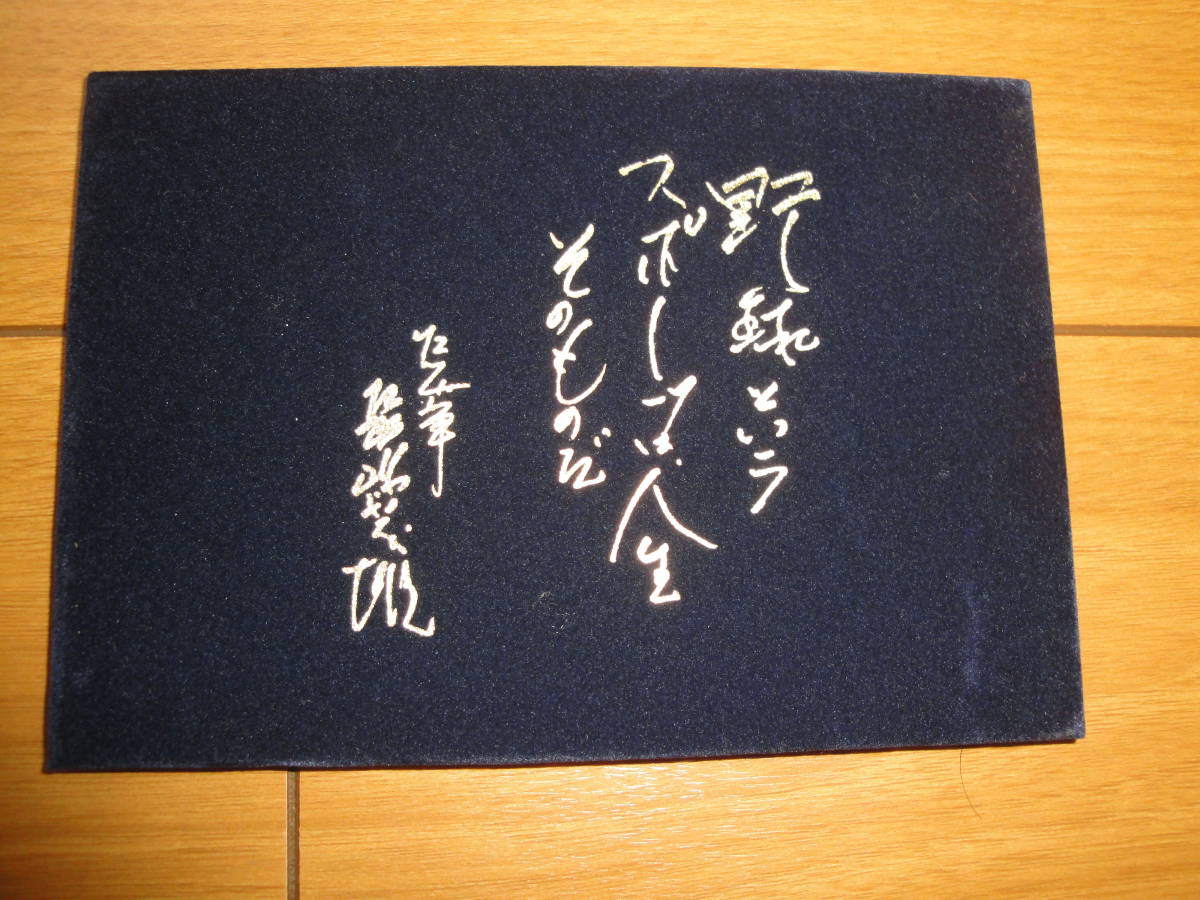 野球という
スポーツは人生
そのものだ
左筆
長嶋茂雄